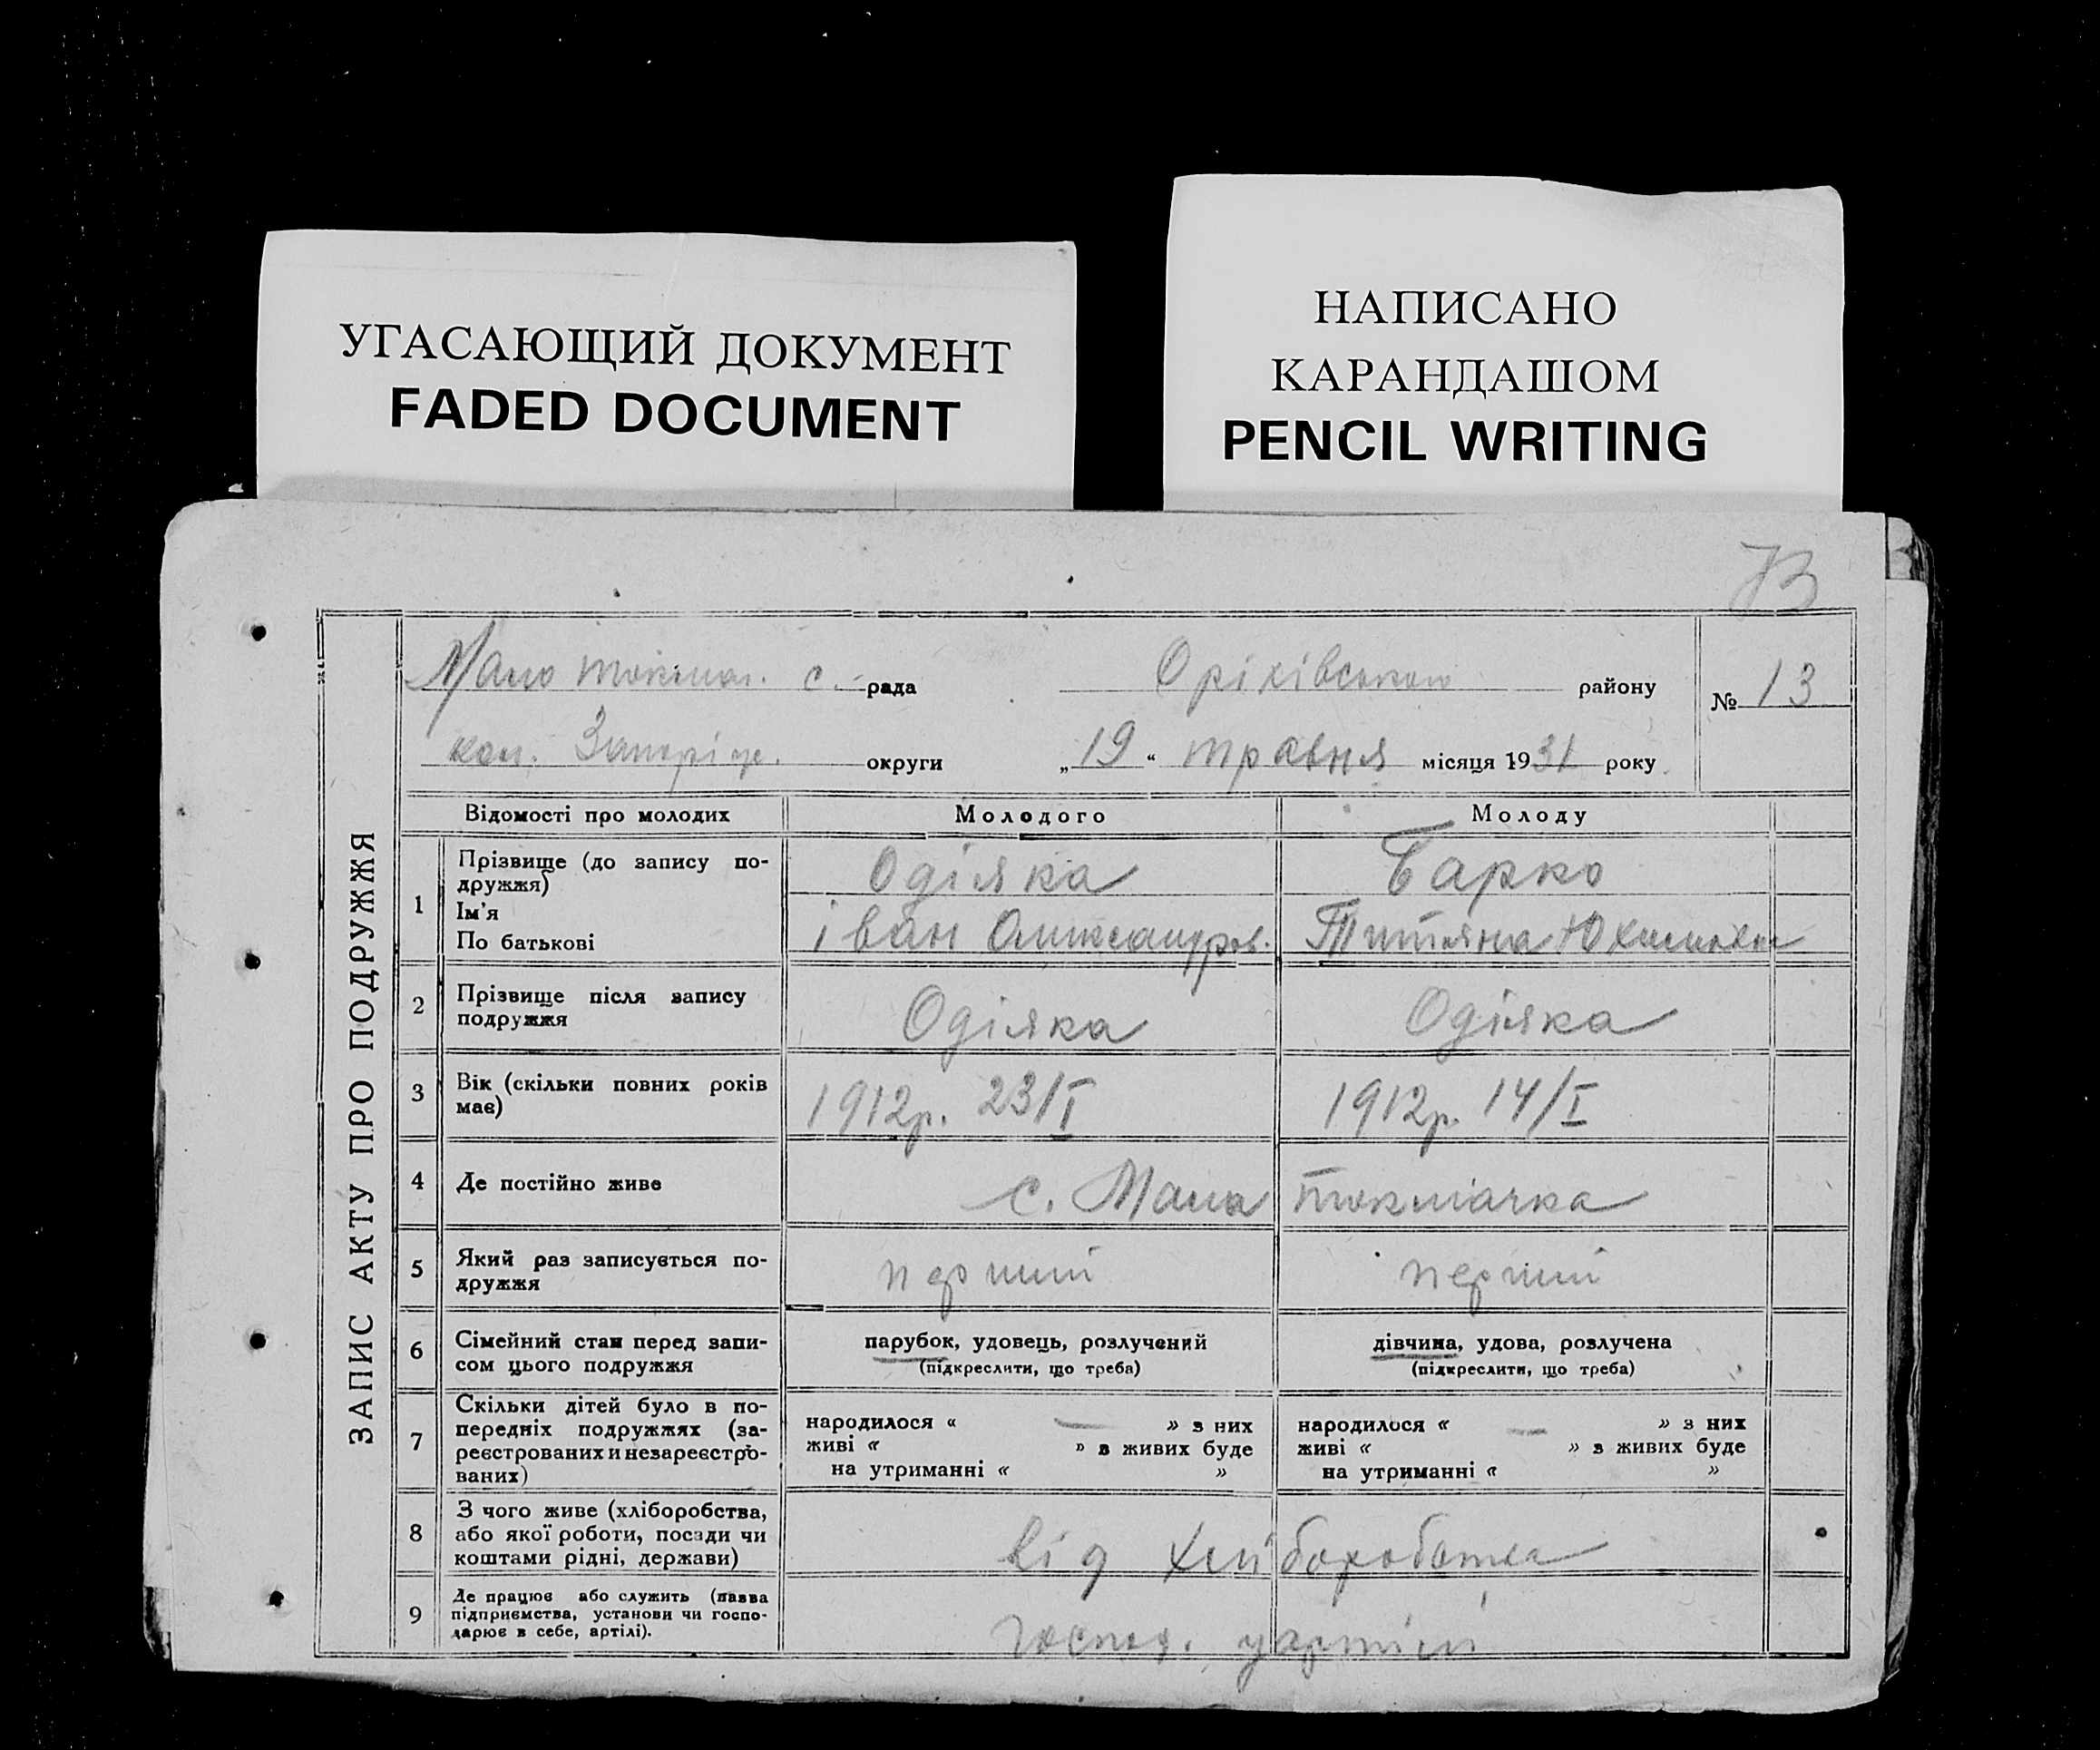 УГАСАЮЩИЙ ДОКУМЕНТ
FADED DOCUMENT
НАПИСАНО
КАРАНДАШОМ
PENCIL WRITING
73
ЗАПИС АКТУ ПРО ПОДРУЖЖЯ
Мало токмач. с. рада Оріхівського району № 13
кол. Запоріж. округи „19“ травня місяця 1931 року
Відомості про молодих Молодого Молоду
1 Прізвище (до запису по-
дружжя) Одіяка Барко
Ім'я
По батькові Іван Олександров. Титяна Юхимівна
2 Прізвище після запису
подружжя Одіяка Одіяка
3 Вік (скільки повних років
має) 1912р. 23/I 1912р. 14/I
4 Де постійно живе с. Мала токмачка
5 Який раз записується по-
дружжя перший перший
6 Сімейний стан перед запи-
сом цього подружжя
парубок, удовець, розлучений
(підкреслити, що треба)
дівчина, удова, розлучена
(підкреслити, що треба)
7 Скільки дітей було в по-
передніх подружжях (за-
реєстрованих и незареєстро-
ваних)
народилося « — » з них
живі « » з живих буде
на утриманні « »
народилося « — » з них
живі « » з живих буде
на утриманні « »
8 З чого живе (хліборобства,
або якої роботи, посади чи
коштами рідні, держави)
від хліборобства
9 Де працює або служить (назва
підприємства, установи чи госпо-
дарює в себе, артілі).
Господ. у артілі